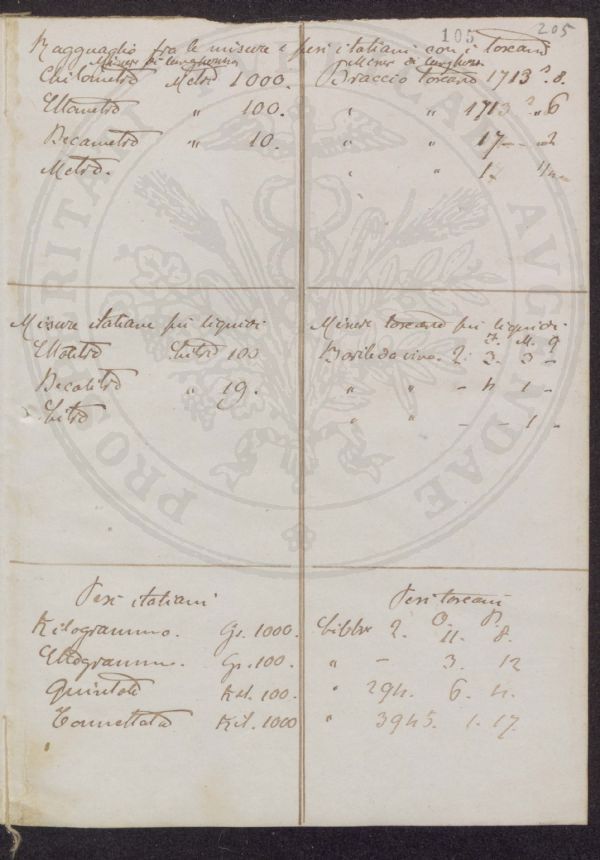 105 205
Ragguaglio fra le misure e pesi italiani con i toscani
Misure di lunghezza
Chilometro Metri 1000.
Ettometro " 100.
Decametro " 10.
Metro.
Misure di lunghezza
Braccio toscano 1713 8.
" " 6
" " 17
" "
Misure italiane pei liquidi
Ettolitro Litri 100
Decalitro " 19.
Litro
Misure toscane pei liquidi
F. M. Q
Barile da vino. 2. 3. 3 -
" " - 4 1 -
" " - - 1 -
Pesi italiani
Kilogrammo. Gr. 1000.
Ettogrammo. Gr. 100.
Quintale Kil. 100.
Tonnellata Kil. 1000
Pesi toscani
O. D.
Libbre 2. 11. 8.
" - 3. 12
" 294. 6. 4.
" 3945. 1. 17.
PROSPERITATI AVGENDAE